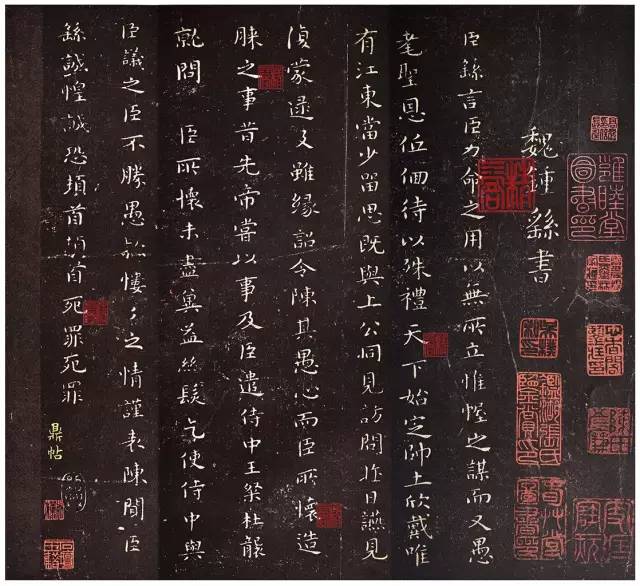 魏鍾繇書
臣繇言臣力命之用以無所立惟幄之謀而又愚
耄聖恩低佪待以殊禮天下始定帥土欣戴唯
有江東當少留思既與上公同見訪問昨日讌見
復蒙逮及雖緣詔令陳其愚心而臣所懷造
膝之事昔先帝嘗以事及臣遣侍中王粲杜襲
就問 臣所懷未盡冀益絲髮乞使侍中與
臣議之臣不勝愚款慺々之情謹表陳聞臣
繇誠惶誠恐頓首頓首死罪死罪
鼎帖